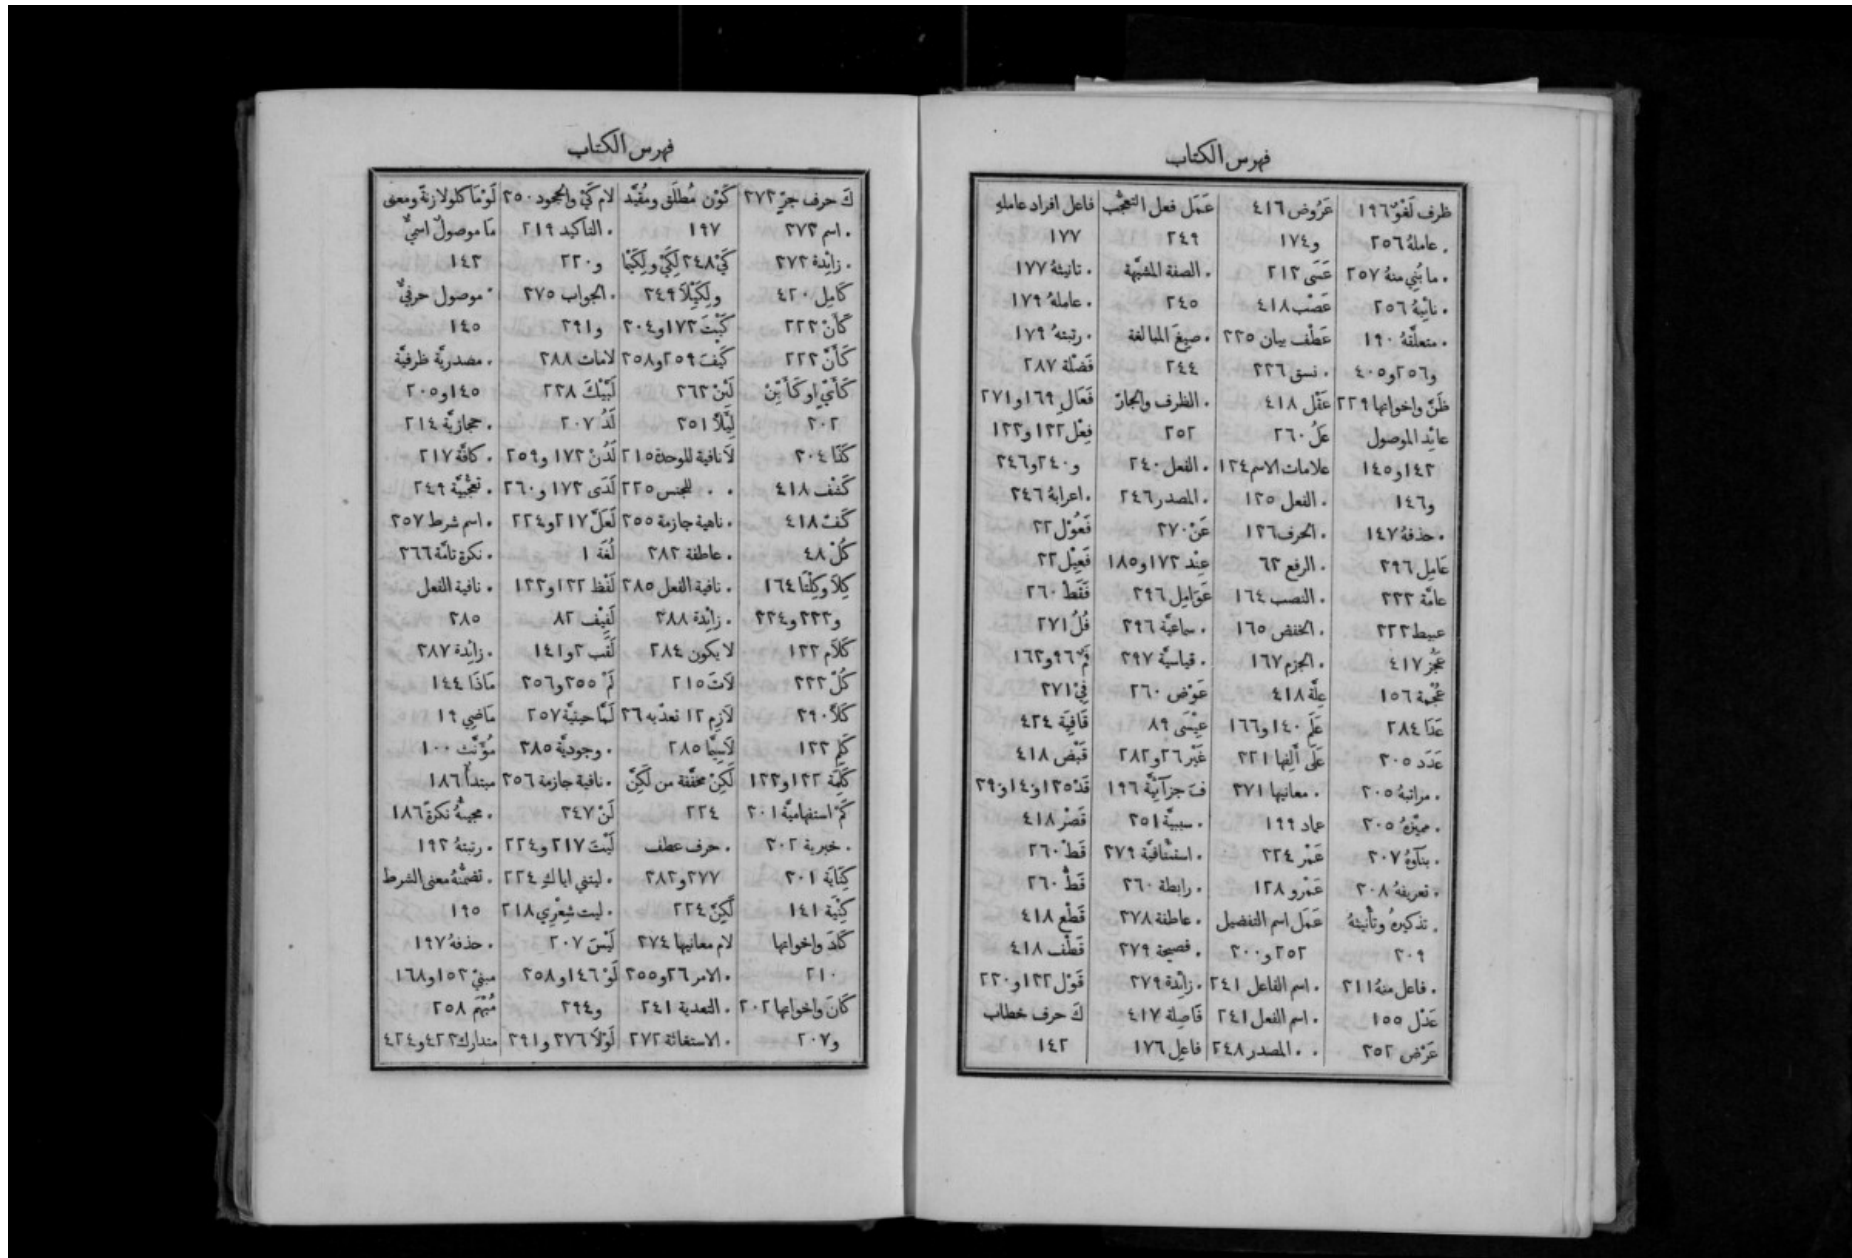 فهرس الكتاب
ظرف لَغْوٌ ١٩٦
. عاملهُ ٢٥٦
. ما بُنِي منهُ ٢٥٧
. نائِبهُ ٢٥٦
. متعلَّقهُ ١٩٠
و٢٥٦ و٤٠٥
ظَنّ واخواتها ٢٢٩
عائِد الموصول
١٤٢ و١٤٥
و١٤٦
. حذفهُ ١٤٧
عَامِل ٢٩٦
عامَّة ٢٢٢
عبيط ٢٢٢
عَجُز ٤١٧
عُجْمة ١٥٦
عَدَا ٢٨٤
عَدَد ٢٠٥
. مراتبهُ ٢٠٥
. مميّزهُ ٢٠٥
. بنآوهُ ٢٠٧
. تعريفهُ ٢٠٨
. تذكيرهُ وتأنيثهُ
٢٠٩
. فاعل منهُ ٢١١
عَدْل ١٥٥
عَرْض ٢٥٢
عَرُوض ٤١٦
و١٧٤
عَسَى ٢١٢
عَصْب ٤١٨
عَطْف بيان ٢٢٥
. نسق ٢٢٦
عَقْل ٤١٨
عَلُ ٢٦٠
علامات الاسم ١٢٤
. الفعل ١٢٥
. الحرف ١٢٦
. الرفع ٦٢
. النصب ١٦٤
. الخفض ١٦٥
. الجزم ١٦٧
عِلَّة ٤١٨
عَلَم ١٤٠ و١٦٦
عَلَى أَلِفها ٢٢١
. معانيها ٢٧١
عماد ١٩٩
عَمْر ٢٢٤
عَمْرو ١٢٨
عَمَل اسم التفضيل
٢٥٢ و٢٠٠
. اسم الفاعل ٢٤١
. اسم الفعل ٢٤١
. . المصدر ٢٤٨
عَمَل فعل التعجُّب
٢٤٩
. الصفة المشبَّهة
٢٤٥
. صِيَغ المبالغة
٢٤٤
. الظرف والجارّ
٢٥٢
. الفعل ٢٤٠
. المصدر ٢٤٦
عَنْ ٢٧٠
عِنْد ١٧٢ و١٨٥
عَوَامِل ٢٩٦
. سماعيَّة ٢٩٦
. قياسيَّة ٢٩٧
عَوْض ٢٦٠
عِيْسَى ٨٩
غَيْر ٢٦ و٢٨٢
فَ جزآئيَّة ١٩٦
. سببيَّة ٢٥١
. استئنافيَّة ٢٧٩
. رابطة ٢٦٠
. عاطفة ٢٧٨
. فصيحة ٢٧٩
. زائِدة ٢٧٩
فَاصِلة ٤١٧
فاعِل ١٧٦
فاعل افراد عاملهِ
١٧٧
. تانيثهُ ١٧٧
. عاملهُ ١٧٩
. رتبتهُ ١٧٩
فَضْلة ٢٨٧
فَعَالِ ١٦٩ و٢٧١
فِعْل ١٢٢ و١٢٣
و٢٤٠ و٢٤٦
. اعرابهُ ٢٤٦
فَعُوْل ٢٢
فَعِيْل ٢٢
فَقَطْ ٢٦٠
فُلُ ٢٧١
فَم ٩٦ و١٦٢
فِيْ ٢٧١
قَافِيَة ٤٢٤
قَبْض ٤١٨
قَدْ ١٢٥ و١٤ و٢٩
قَصْر ٤١٨
قَطْ ٢٦٠
قَطُّ ٢٦٠
قَطْع ٤١٨
قَطْف ٤١٨
قَوْل ١٢٢ و٢٢٠
كَ حرف خطاب
١٤٢
فهرس الكتاب
كَ حرف جرّ ٢٧٢
. اسم ٢٧٢
. زائِدة ٢٧٢
كَامِل ٤٢٠
كَأَنْ ٢٢٢
كَأَنَّ ٢٢٢
كَأَيّ او كَأَيِّنْ
٢٠٢
كَذَا ٢٠٤
كَشْف ٤١٨
كَفّ ٤١٨
كُلْ ٤٨
كِلاَ وكِلْتَا ١٦٤
و٢٢٢ و٢٢٤
كَلاَم ١٢٢
كُلّ ٢٢٢
كَلاَّ ٢٩٠
كَلِم ١٢٢
كَلِمَة ١٢٢ و١٢٣
كَمْ استفهاميَّة ٢٠١
. خبرية ٢٠٢
كِنَايَة ٢٠١
كُنْيَة ١٤١
كَادَ واخواتها
٢١٠
كَانَ واخواتها ٢٠٢
و٢٠٧
كَوْن مُطلَق ومُقيَّد
١٩٧
كَيْ ٢٤٨ لِكَيْ ولِكَيْمَا
ولِكَيْلاَ ٢٤٩
كَيْتَ ١٧٢ و٢٠٤
كَيْفَ ٢٥٩ و٢٥٨
لَئِنْ ٢٦٢
لِئَلاَّ ٢٥١
لاَ نافية للوحدة ٢١٥
. . للجنس ٢٢٥
. ناهية جازمة ٢٥٥
. عاطفة ٢٨٢
. نافية الفعل ٢٨٥
. زائِدة ٢٨٨
لا يكون ٢٨٤
لاَتَ ٢١٥
لاَزِم ١٢ تعدّيه ٢٦
لاَسِيَّما ٢٨٥
لَكِنْ مخفَّفة من لَكِنَّ
٢٢٤
. حرف عطف
٢٧٧ و٢٨٢
لَكِنَّ ٢٢٤
لام معانيها ٢٧٤
. الامر ٢٦ و٢٥٥
. التعدية ٢٤١
. الاستغاثة ٢٧٢
لام كَيْ والجحود ٢٥٠
. التاكيد ٢١٩
و٢٢٠
. الجواب ٢٧٥
و٢٩١
لامات ٢٨٨
لَبَّيْكَ ٢٢٨
لَدُ ٢٠٧
لَدُنْ ١٧٢ و٢٥٩
لَدَى ١٧٢ و٢٦٠
لَعَلَّ ٢١٧ و٢٢٤
لُغَة ١
لَفْظ ١٢٢ و١٢٣
لَفِيْف ٨٢
لَقَب ٢ و١٤١
لَمْ ٢٥٥ و٢٥٦
لَمَّا حينيَّة ٢٥٧
. وجوديَّة ٢٨٥
. نافية جازمة ٢٥٦
لَنْ ٢٤٧
لَيْتَ ٢١٧ و٢٢٤
. ليتني اياك ٢٢٤
. ليت شِعْرِي ٢١٨
لَيْسَ ٢٠٧
لَوْ ١٤٦ و٢٥٨
و٢٩٤
لَوْلاَ ٢٧٦ و٢٩١
لَوْمَا كلولا زنةً ومعنى
مَا موصولٌ اسميٌّ
١٤٢
. موصول حرفيٌّ
١٤٥
. مصدريَّة ظرفيَّة
١٤٥ و٢٠٥
. حجازيَّة ٢١٤
. كافَّة ٢١٧
. تعجُّبيَّة ٢٤٩
. اسم شرط ٢٥٧
. نكرة تامَّة ٢٦٦
. نافية الفعل
٢٨٥
. زائِدة ٢٨٧
مَاذَا ١٤٤
مَاضِي ١٩
مُؤَنَّث ١٠٠
مبتدأ ١٨٦
. مجيئهُ نكرة ١٨٦
. رتبتهُ ١٩٢
. تضمُّنهُ معنى الشرط
١٩٥
. حذفهُ ١٩٧
مبنيّ ١٥٢ و١٦٨
مُبْهَم ٢٥٨
متدارك ٤٢٢ و٤٢٤